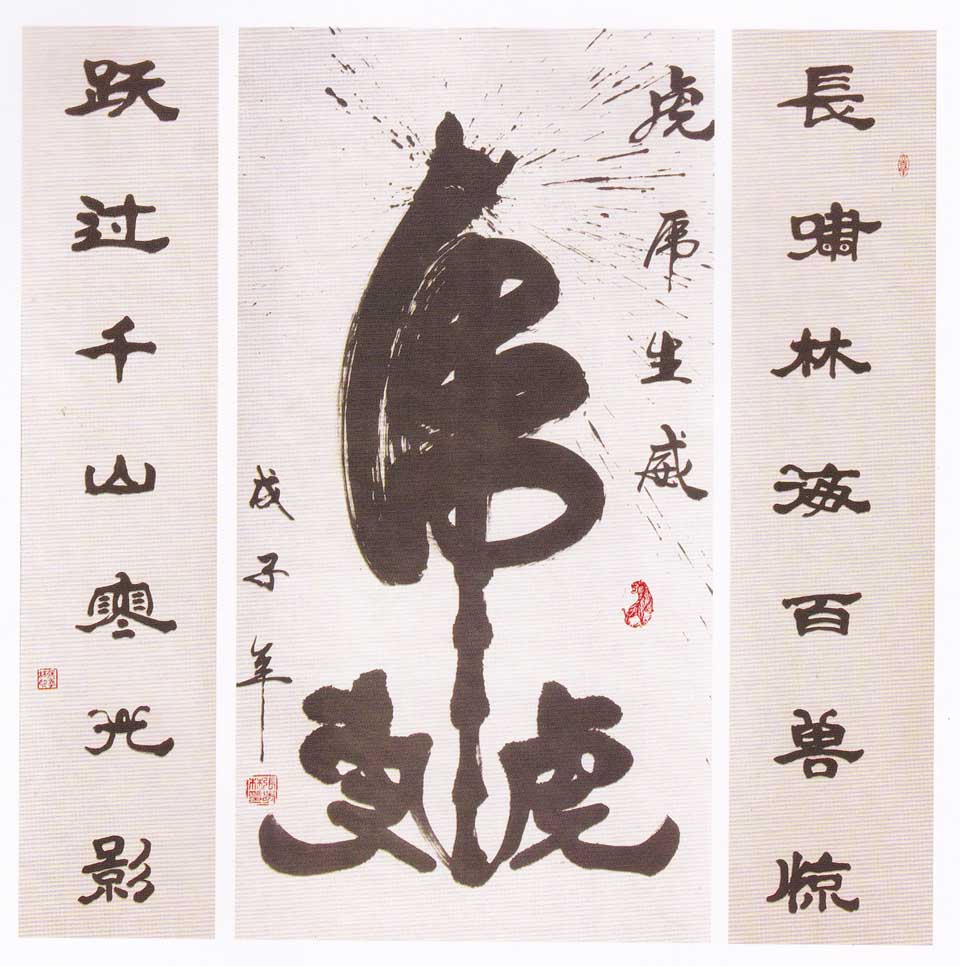 長嘯林海百兽惊
虎虎生威
虎
虎
戊子年
跃过千山寒光影